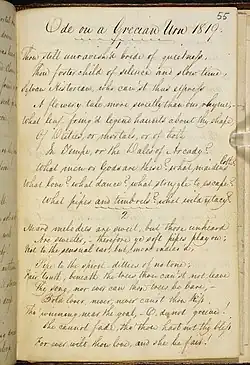 55
Ode on a Grecian Urn 1819.
1
Thou still unravish'd bride of quietness,
Thou foster child of silence and slow time,
Sylvan Historian, who canst thus express
A flowery tale more sweetly than our rhyme;
What leaf fring'd legend haunts about thy shape
Of Deities, or mortals, or of both
In Tempe, or the Dales of Arcady?
What men or Gods are these? what maidens loth?
What love? what dance? what struggle to escape?
What pipes and timbrels? what wild extacy?
2
Heard melodies are sweet, but those unheard
Are sweeter, therefore ye soft pipes play on;
Not to the sensual ear, but, more endear'd,
Pipe to the spirit ditties of no tone;
Fair Youth, beneath the trees thou can'st not leave
Thy song, nor ever can those trees be bare,
Bold lover never, never can'st thou kiss,
Tho' winning near the goal, O, do not grieve!
She cannot fade, tho' thou hast not thy bliss
For ever wilt thou love, and she be fair!